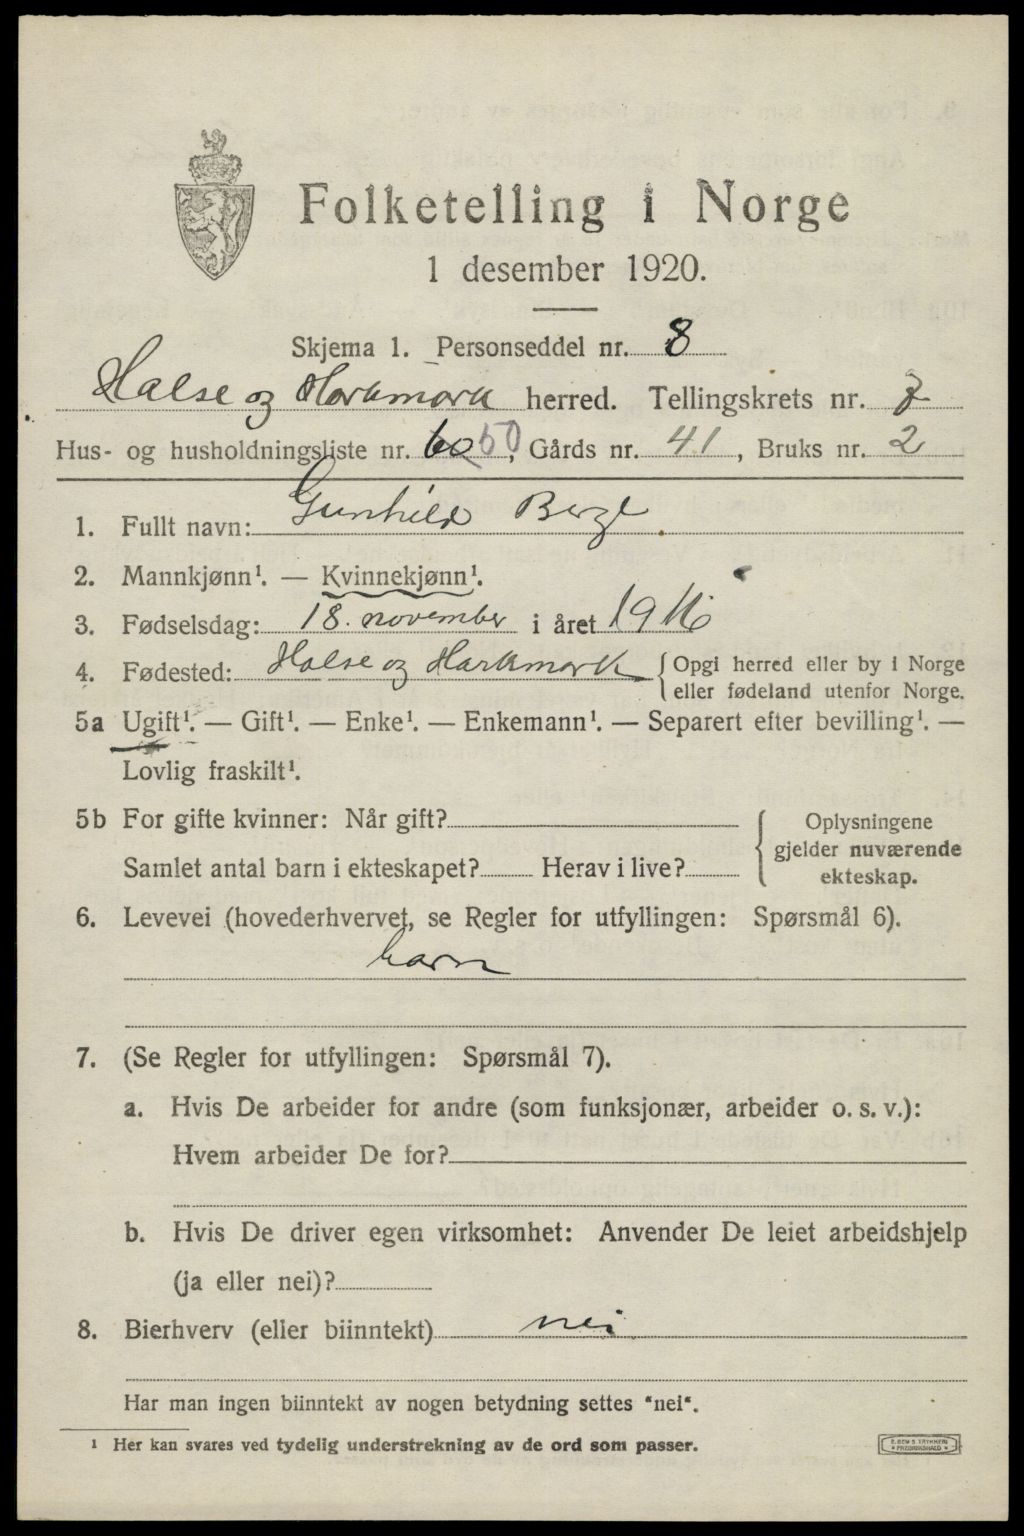 Folketelling i Norge
1 desember 1920.
Skjema 1. Personseddel nr. 8
Halse og Harkmark herred. Tellingskrets nr. 3
Hus- og husholdningsliste nr. 60 50, Gårds nr. 41, Bruks nr. 2
1. Fullt navn: Gunhild Berge
2. Mannkjønn¹. — Kvinnekjønn¹.
3. Fødselsdag: 18. november i året 1916
4. Fødested: Halse og Harkmark { Opgi herred eller by i Norge
eller fødeland utenfor Norge.
5a Ugift¹. — Gift¹. — Enke¹. — Enkemann¹. — Separert efter bevilling¹. —
Lovlig fraskilt¹.
5b For gifte kvinner: Når gift?
Samlet antal barn i ekteskapet? Herav i live?
{ Oplysningene
gjelder nuværende
ekteskap.
6. Levevei (hovederhvervet, se Regler for utfyllingen: Spørsmål 6).
barn
7. (Se Regler for utfyllingen: Spørsmål 7).
a. Hvis De arbeider for andre (som funksjonær, arbeider o. s. v.):
Hvem arbeider De for?
b. Hvis De driver egen virksomhet: Anvender De leiet arbeidshjelp
(ja eller nei)?
8. Bierhverv (eller biinntekt) nei
Har man ingen biinntekt av nogen betydning settes "nei".
¹ Her kan svares ved tydelig understrekning av de ord som passer.